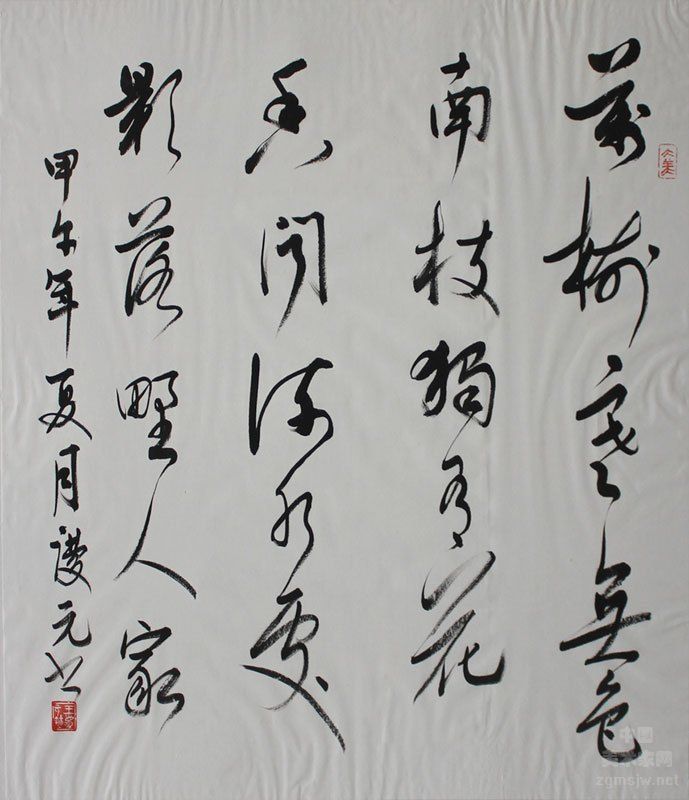 萬樹寒無色
南枝獨有花
香聞流水處
影落野人家
甲午年夏月元书
大美
中国
美术家网
zgmsjw.net